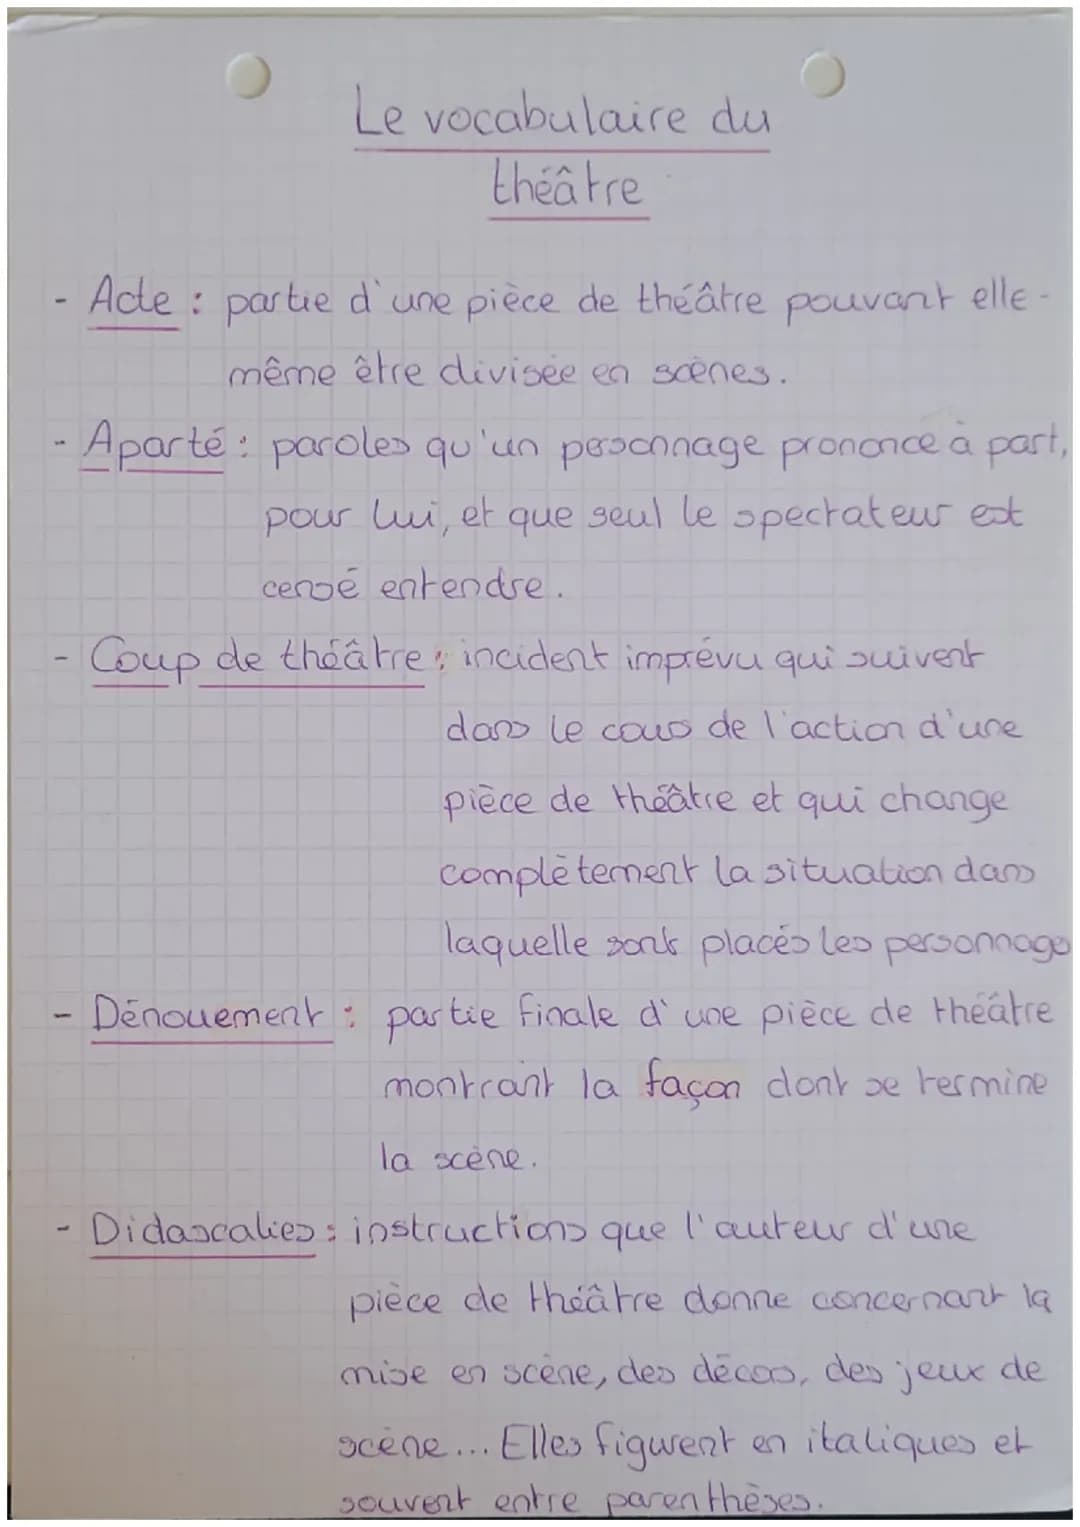 Le vocabulaire du
théâtre
- Acte : partie d'une pièce de théâtre pouvant elle-
même être divisée en scènes.
- Aparté : paroles qu'un personnage prononce à part,
pour lui, et que seul le spectateur est
censé entendre.
- Coup de théâtre : incident imprévu qui suivent
dans le cours de l'action d'une
pièce de théâtre et qui change
complètement la situation dans
laquelle sont placés les personnage
- Dénouement : partie finale d'une pièce de théâtre
montrant la façon dont se termine
la scène.
- Didascalies : instructions que l'auteur d'une
pièce de théâtre donne concernant la
mise en scène, des décors, des jeux de
scène... Elles figurent en italiques et
souvent entre parenthèses.